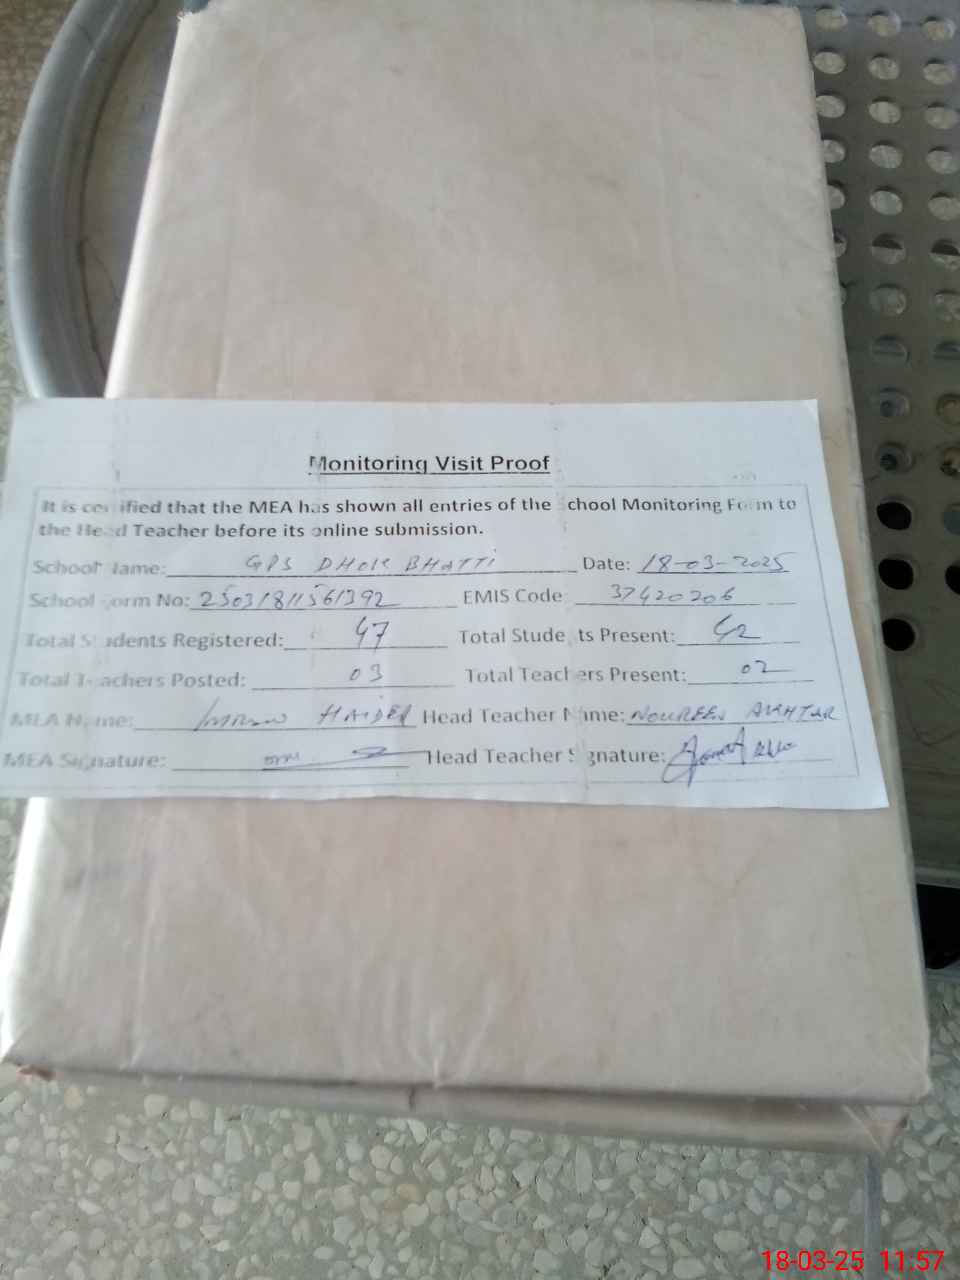 Monitoring Visit Proof
It is certified that the MEA has shown all entries of the School Monitoring Form to
the Head Teacher before its online submission.
School Name: GPS DHOK BHATTI Date: 18-03-2025
School Form No: 25031811561392 EMIS Code: 37420206
Total Students Registered: 47 Total Students Present: 42
Total Teachers Posted: 03 Total Teachers Present: 02
MEA Name: IMRAN HAIDER Head Teacher Name: NOUREEN AKHTAR
MEA Signature: Head Teacher Signature:
18-03-25 11:57